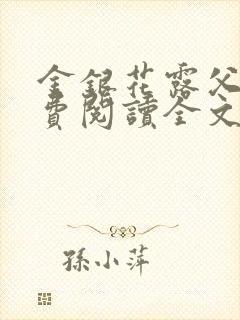 金銀花露父
費閱讀全文
孫小萍